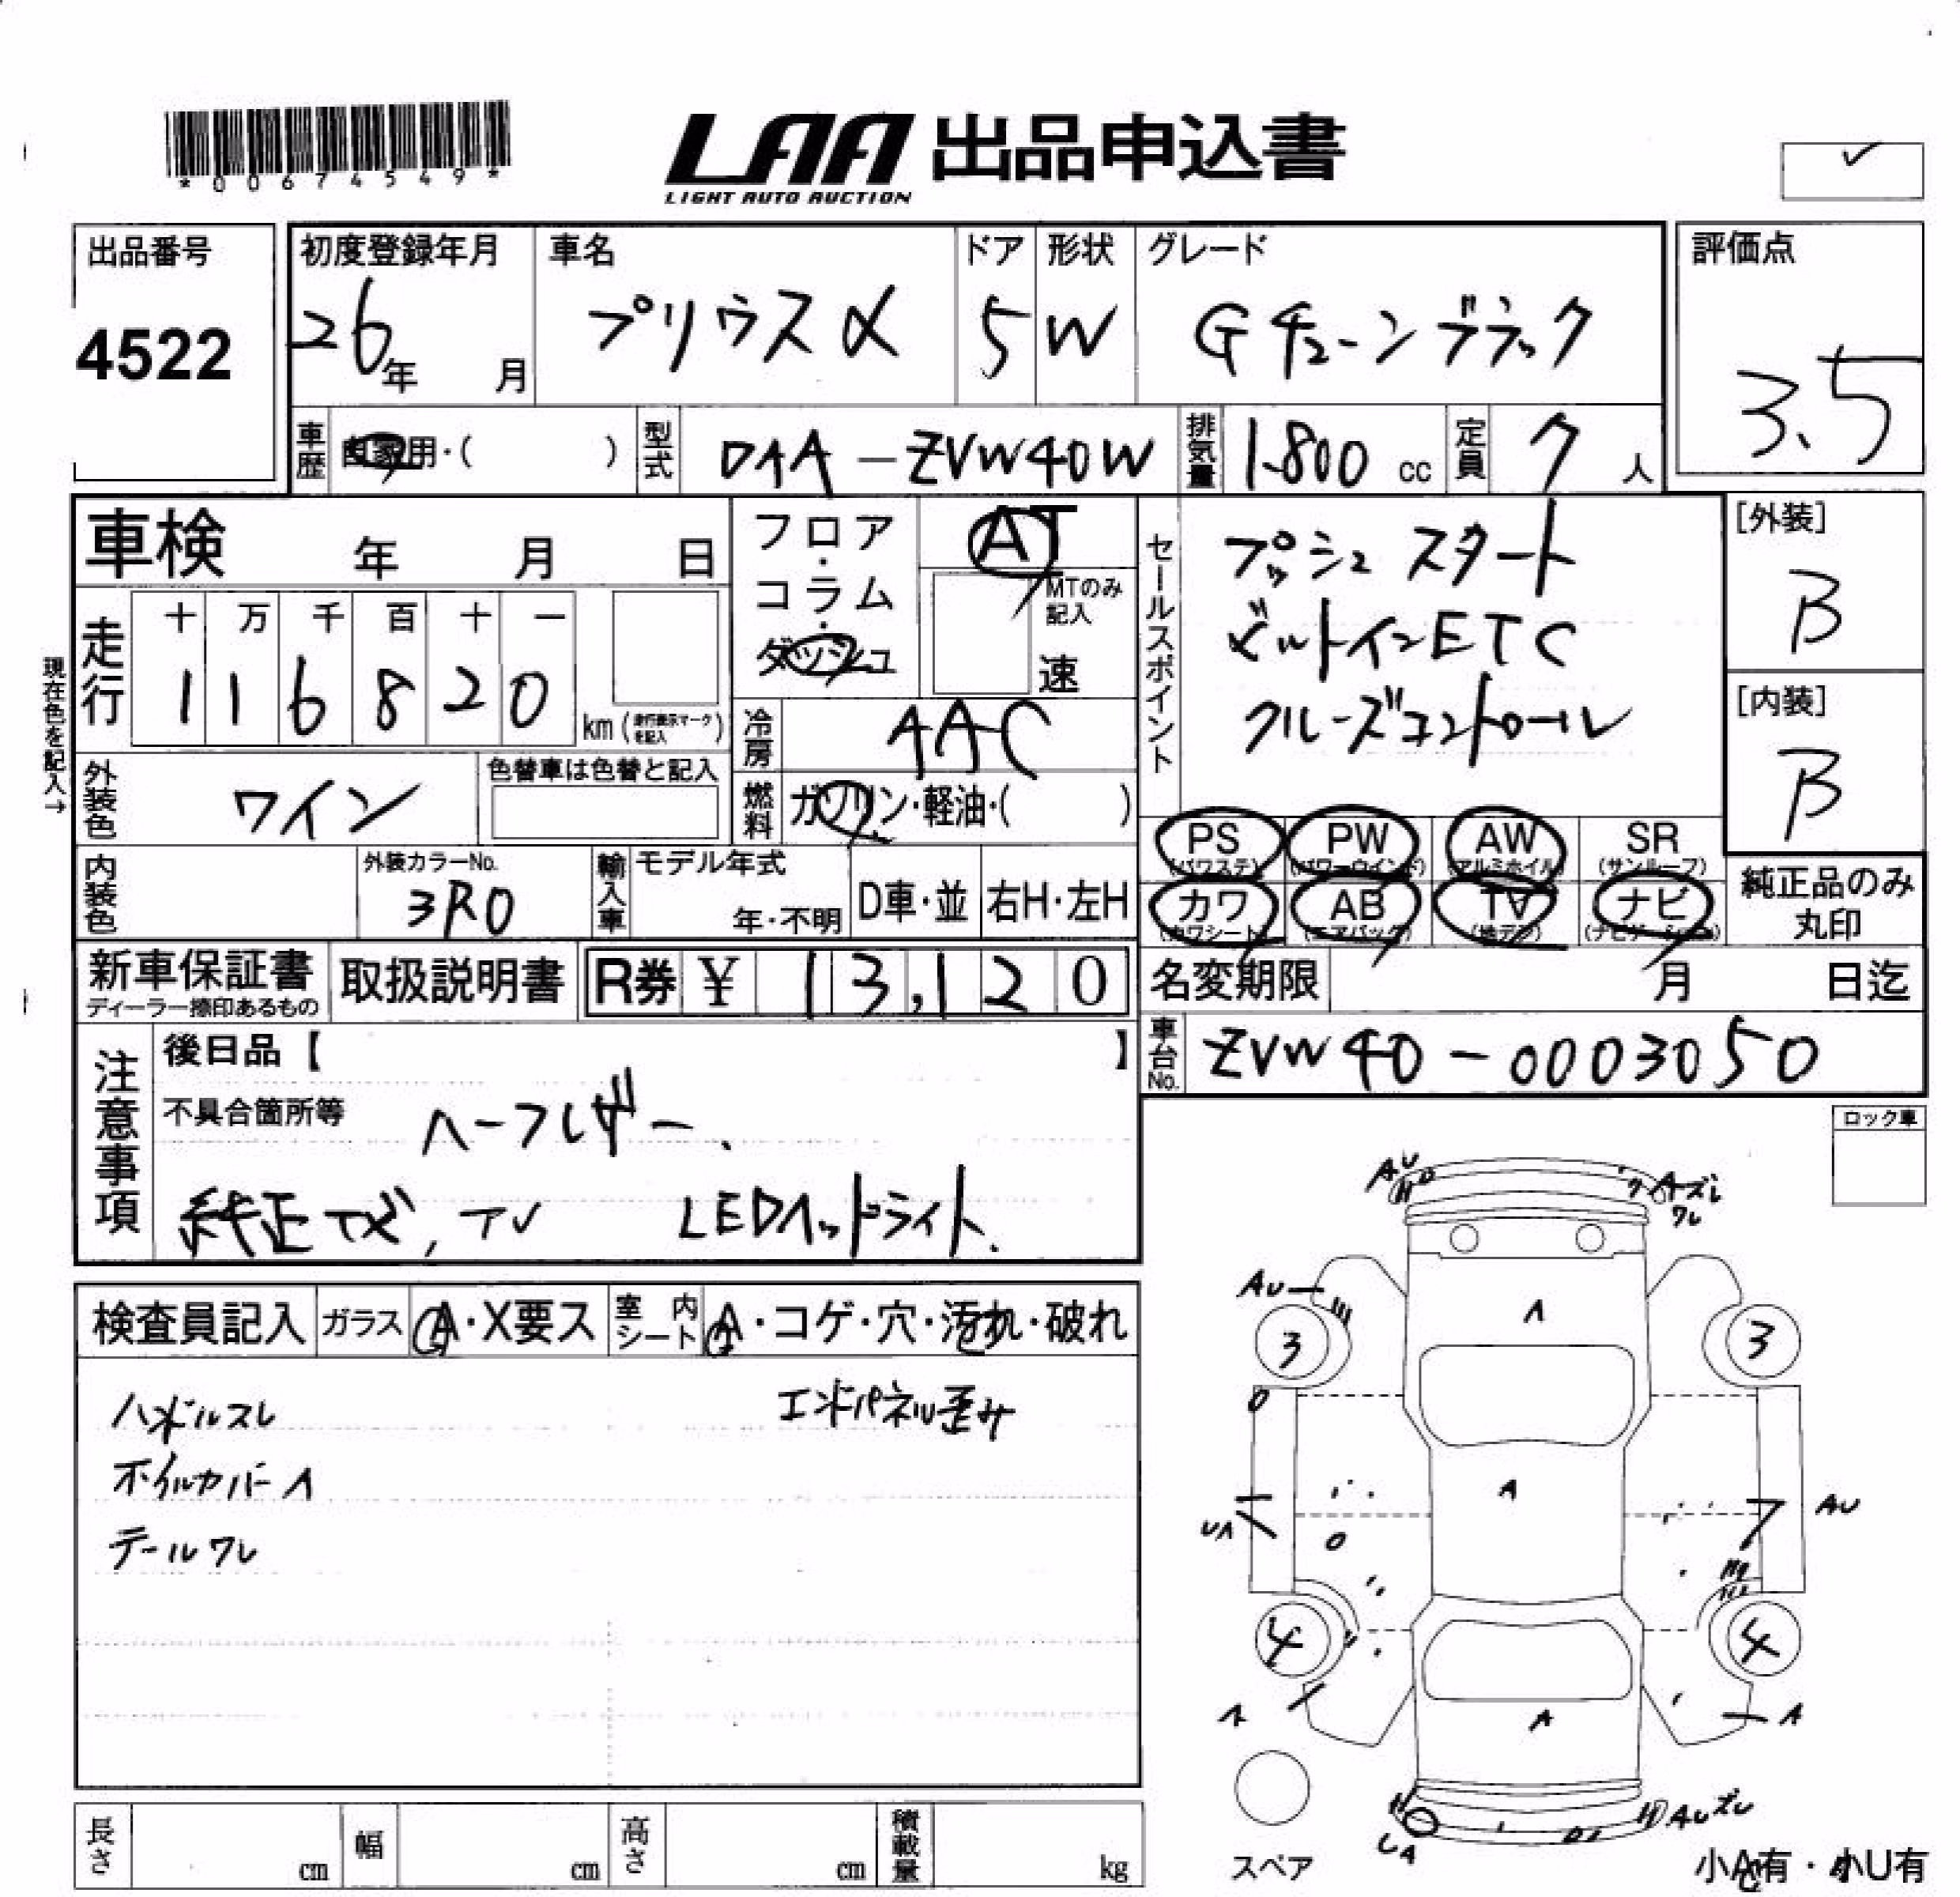 *00674549*
LAA 出品申込書
LIGHT AUTO AUCTION
出品番号
4522
初度登録年月
26年 月
車名
プリウスα
ドア
5
形状
W
グレード
Gチューンブラック
評価点
3.5
車歴
自家用・( )
型式
DAA-ZVW40W
排気量
1.800 cc
定員
7人
車検 年 月 日
フロア・コラム・ダッシュ
AT
MTのみ記入
速
セールスポイント
プッシュスタート
ビルトインETC
クルーズコントロール
[外装]
B
[内装]
B
現在色を記入→
走行
十 万 千 百 十 一
1 1 6 8 2 0
km (走行表示マークを記入)
冷房
AAC
燃料
ガソリン・軽油・( )
外装色
ワイン
色替車は色替と記入
PS (パワステ)
PW (パワーウインド)
AW (アルミホイル)
SR (サンルーフ)
カワ (カワシート)
AB (エアバック)
TV (地デジ)
ナビ (ナビゲーション)
純正品のみ丸印
内装色
外装カラーNo.
3R0
輸入車
モデル年式
年・不明
D車・並
右H・左H
新車保証書
ディーラー捺印あるもの
取扱説明書
R券 ¥ 13,120
名変期限 月 日迄
車台No.
ZVW40-0003050
注意事項
後日品【 】
不具合箇所等
ハーフレザー.
純正ナビ, TV LEDヘッドライト.
ロック車
検査員記入
ガラス
A・X要ス
室内シート
A・コゲ・穴・汚れ・破れ
ハンドルスレ
エンドパネル歪み
ホイルカバーA
テールワレ
AU
Aズレ
ワレ
AU
A
3
3
A
UA
AU
4
4
A
A
A
UA
AUズレ
スペア
小A有・小U有
長さ cm
幅 cm
高さ cm
積載量 kg